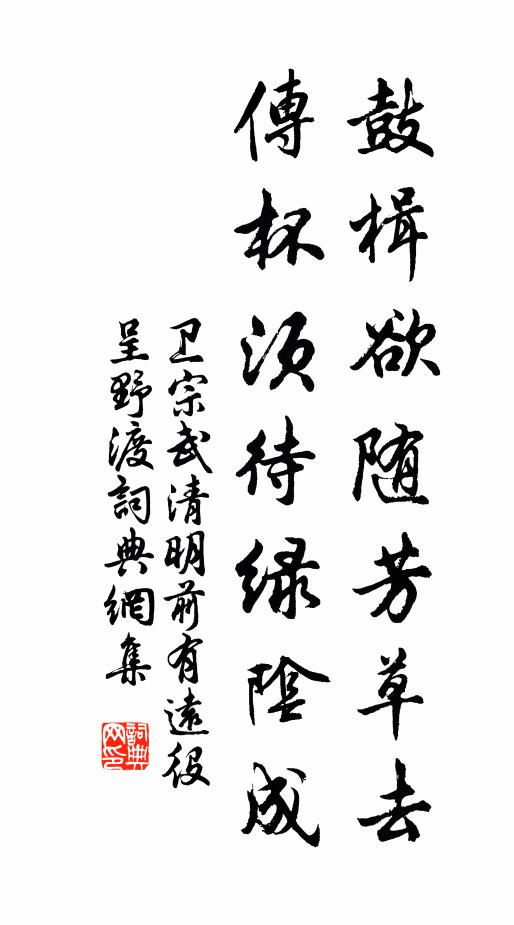 鼓楫欲随芳草去
傳杯須待緑陰成
卫宗武清明前有遠役
呈野渡詞典網集
詞典网印